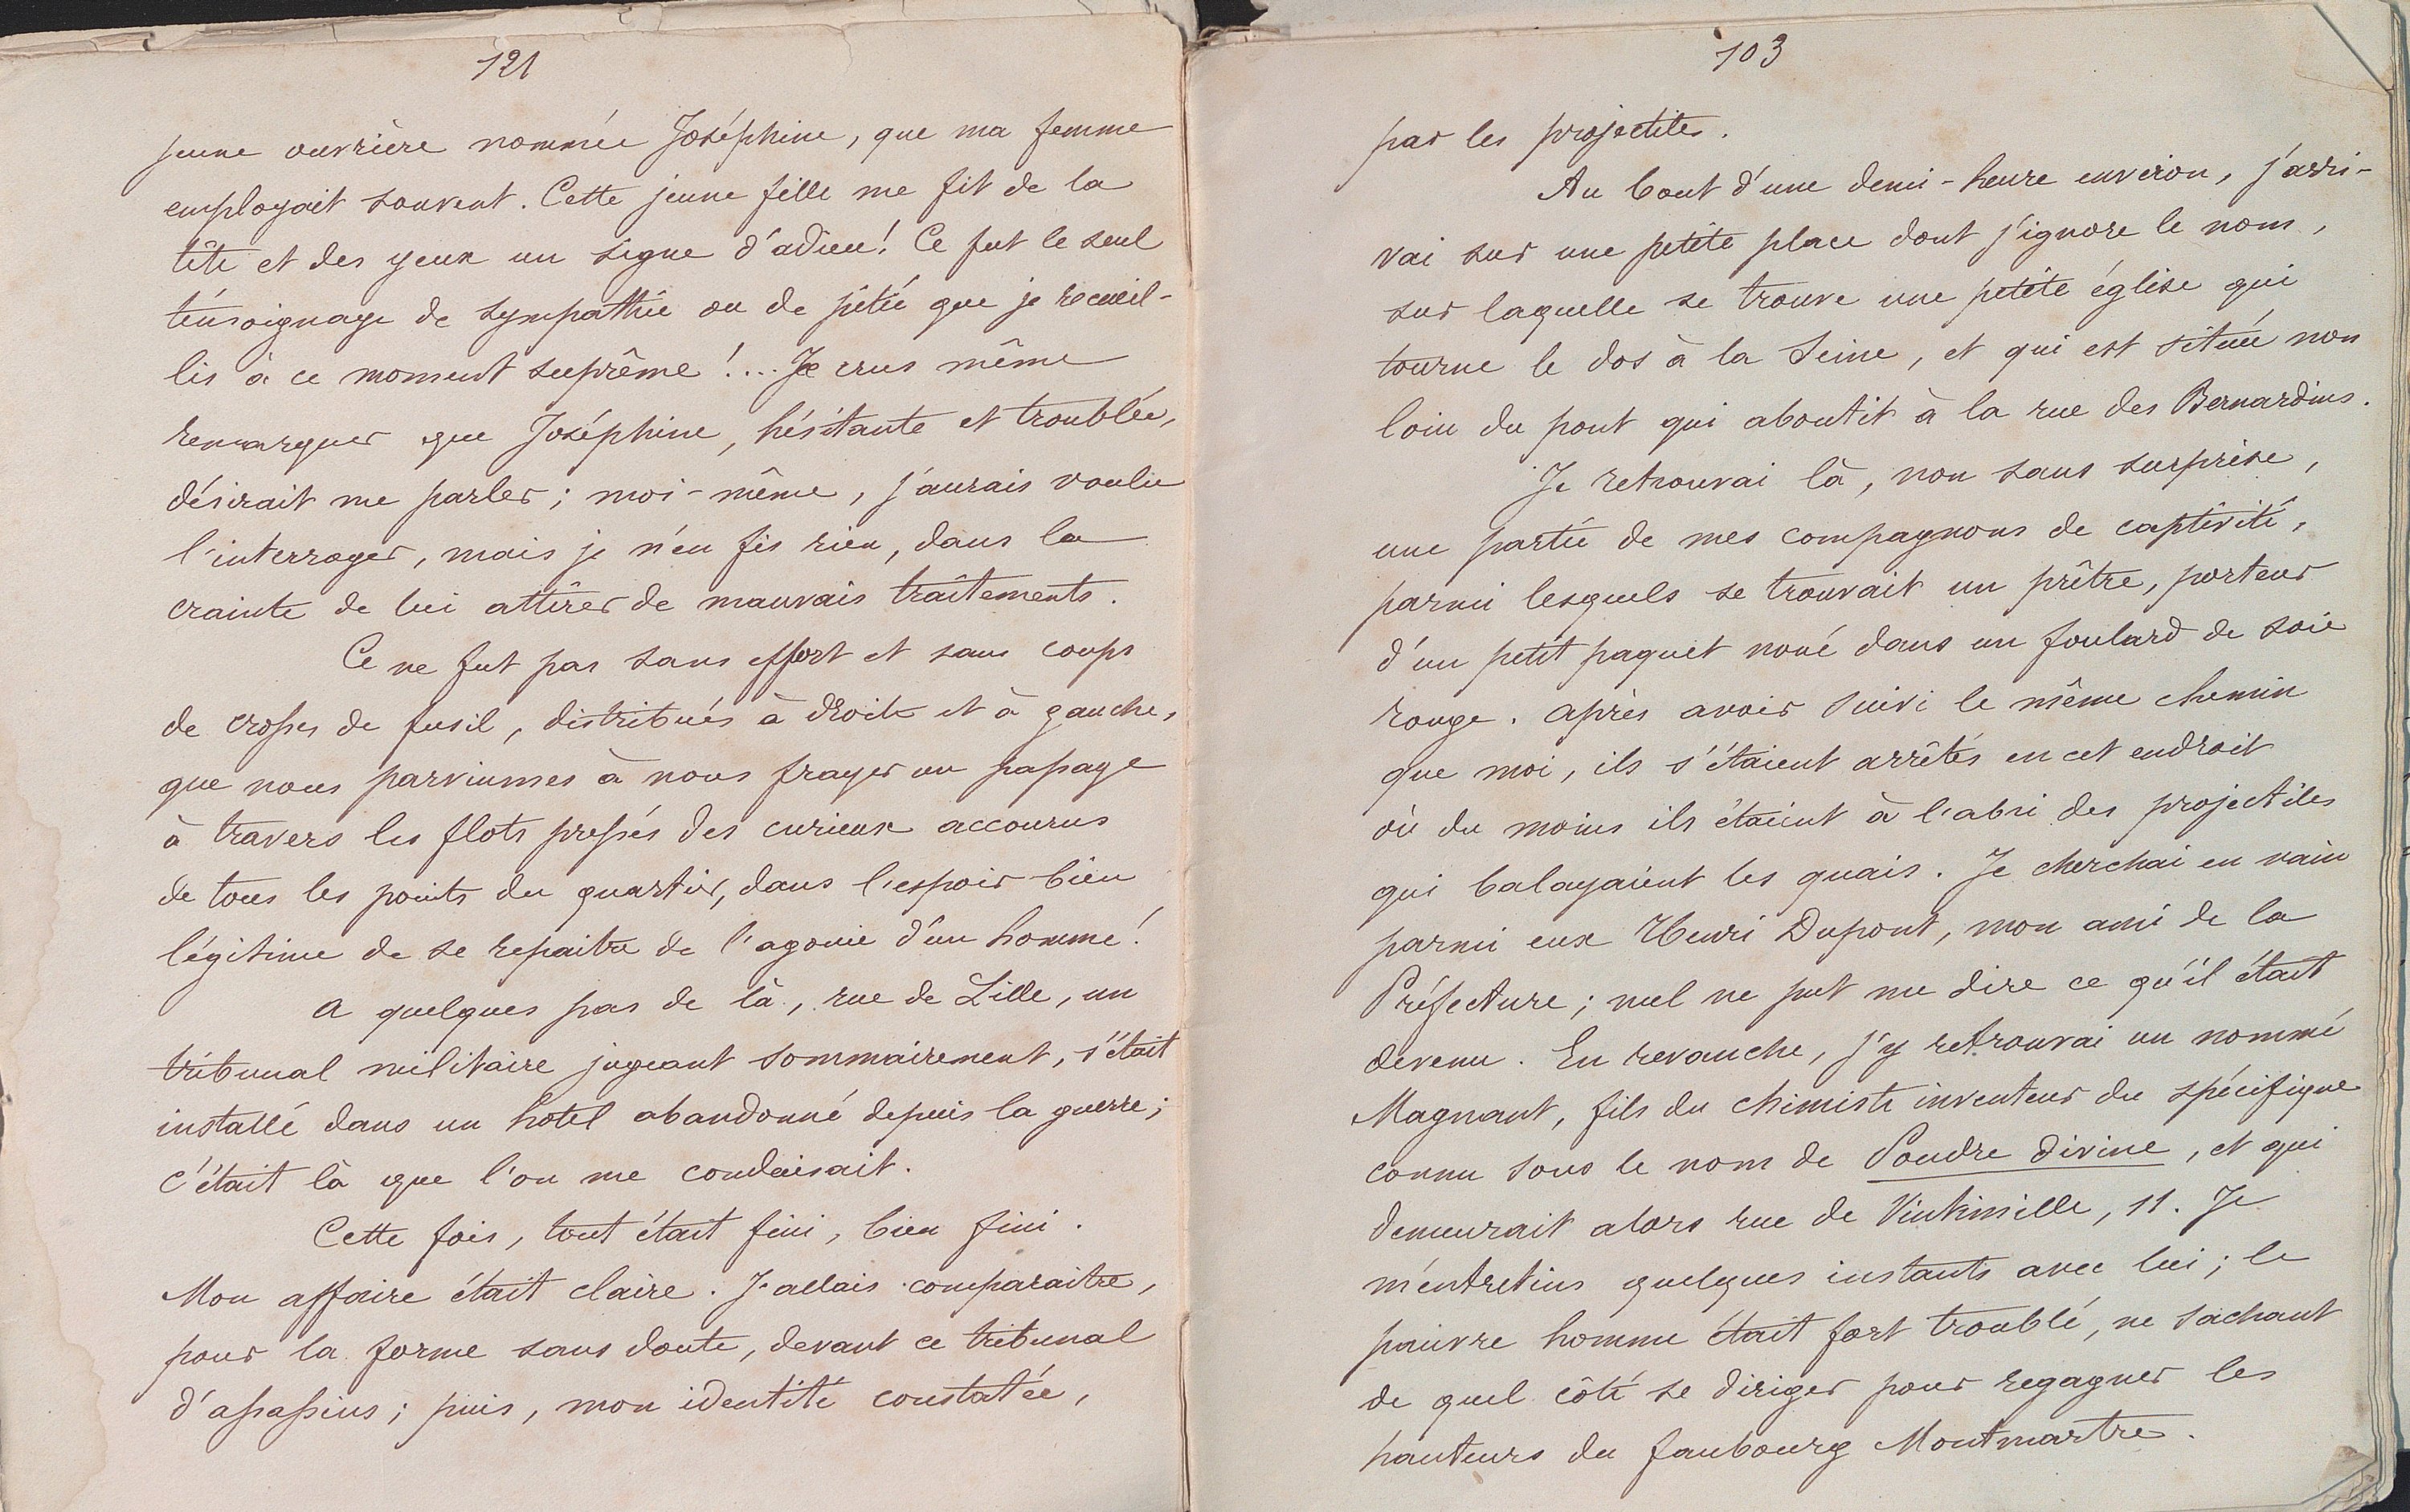 121
jeune ouvrière nommée Joséphine, que ma femme
employait souvent. Cette jeune fille me fit de la
tête et des yeux un signe d'adieu! Ce fut le seul
témoignage de sympathie ou de pitié que je recueil-
lis à ce moment suprême!... Je crus même
remarquer que Joséphine, hésitante et troublée,
désirait me parler; moi-même, j'aurais voulu
l'interroger, mais je n'en fis rien, dans la
crainte de lui attirer de mauvais traîtements.
Ce ne fut pas sans effort et sans coups
de crosses de fusil, distribués à droite et à gauche,
que nous parvinmes à nous frayer un passage
à travers les flots pressés des curieux accourus
de tous les points du quartier, dans l'espoir bien
légitime de se repaitre de l'agonie d'un homme!
A quelques pas de là, rue de Lille, un
tribunal militaire jugeant sommairement, s'était
installé dans un hôtel abandonné depuis la guerre;
c'était là que l'on me conduisait.
Cette fois, tout était fini, bien fini.
Mon affaire était claire. J'allais comparaitre,
pour la forme sans doute, devant ce tribunal
d'assassins; puis, mon identité constatée,
103
par les projectiles.
Au bout d'une demi-heure environ, j'arri-
vai sur une petite place dont j'ignore le nom,
sur laquelle se trouve une petite église qui
tourne le dos à la Seine, et qui est située non
loin du pont qui aboutit à la rue des Bernardins.
Je retrouvai là, non sans surprise,
une partie de mes compagnons de captivité,
parmi lesquels se trouvait un prêtre, porteur
d'un petit paquet noué dans un foulard de soie
rouge. Après avoir suivi le même chemin
que moi, ils s'étaient arrêtés en cet endroit
où du moins ils étaient à l'abri des projectiles
qui balayaient les quais. Je cherchai en vain
parmi eux Henri Dupont, mon ami de la
Préfecture; nul ne put me dire ce qu'il était
devenu. En revanche, j'y retrouvai un nommé
Magnant, fils du chimiste inventeur du spécifique
connu sous le nom de Poudre divine, et qui
demeurait alors rue de Vintimille, 11. Je
m'entretins quelques instants avec lui; le
pauvre homme était fort troublé, ne sachant
de quel côté se diriger pour regagner les
hauteurs du faubourg Montmartre.